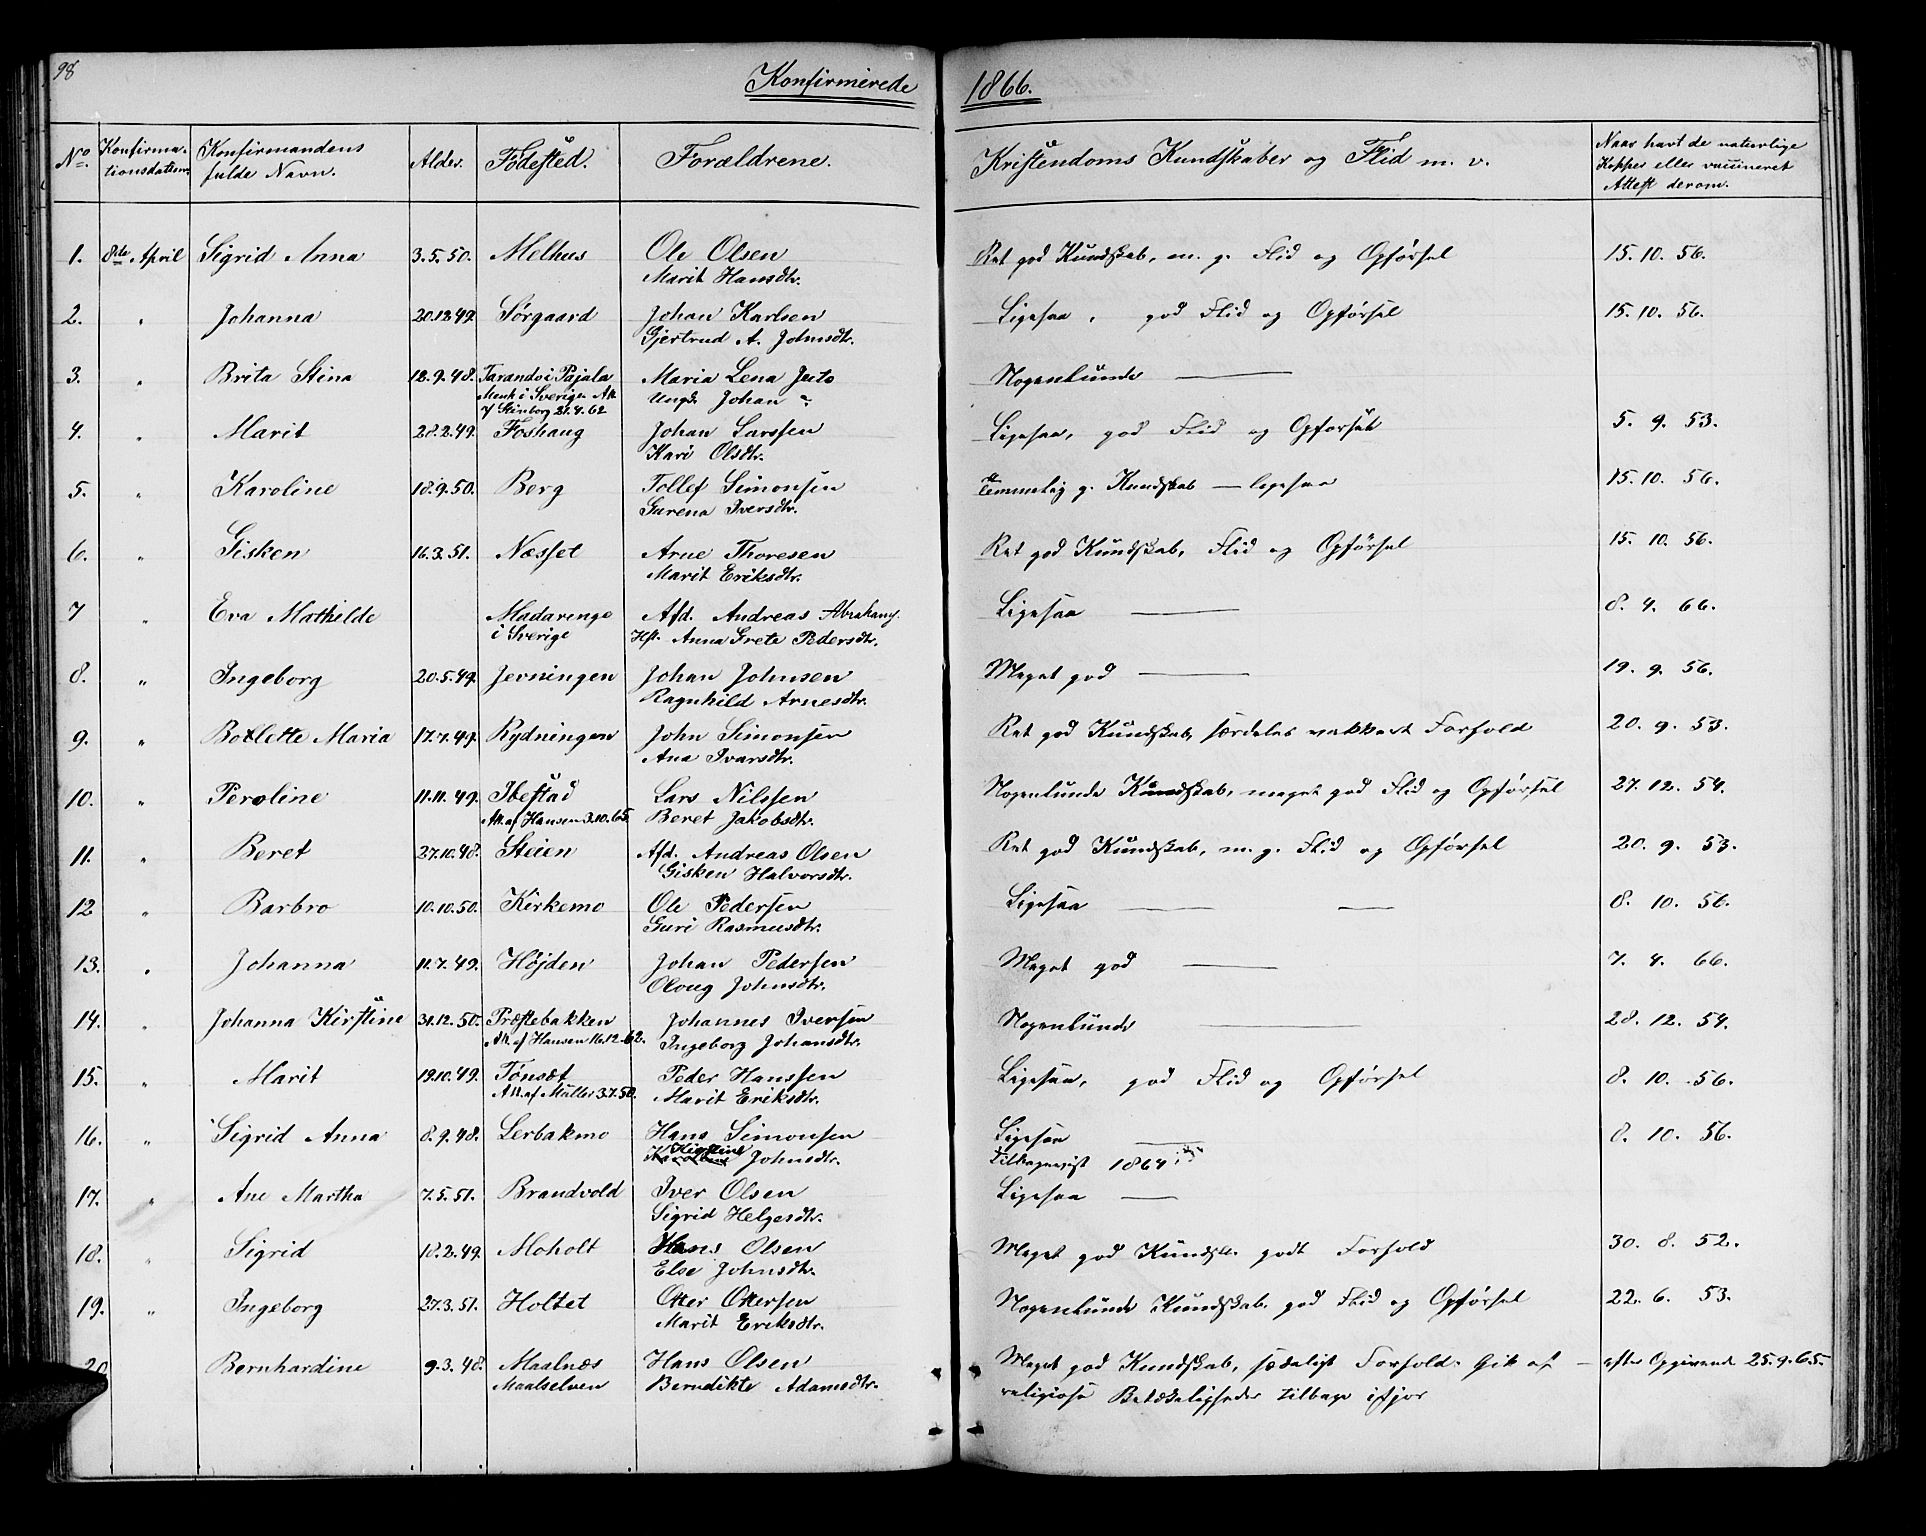 98
Konfirmerede 1866.
No. Konfirmationsdatum. Konfirmandens fulde Navn. Alder. Födested. Forældrene. Kristendoms Kundskaber og Flid m. v. Naar havt de naturlige Kopper eller vaccineret Attest derom.
1. 8de April Sigrid Anna 3.5.50. Melhus Ole Olsen Ret god Kundskab, m. g. Flid og Opførsel 15. 10. 56.
Marit Hansdtr.
2. " Johanna 20.12.49. Sørgaard Johan Karlsen Ligesaa, god Flid og Opførsel 15. 10. 56.
Gjertrud A. Johnsdtr.
3. " Brita Stina 18.9.48. Tarandö i Pajala Maria Lena Juto Nogenlunde —
Menh i Sverige Att. Ungk. Johan
af Stenborg 21.4.62
4. " Marit 28.2.49. Foshaug Johan Larssen Ligesaa, god Flid og Opførsel 5. 9. 53.
Kari Olsdtr.
5. " Karoline 18.9.50. Berg Tollef Simonsen Temmelig g. Kundskab — ligesaa 15. 10. 56.
Gurena Iversdtr.
6. " Gisken 16.3.51. Næsset Arne Thoresen Ret god Kundskab, Flid og Opførsel 15. 10. 56.
Marit Eriksdtr.
7 " Eva Mathilde Madarenge Afd. Andreas Abrahams. Ligesaa — 8. 4. 66.
i Sverige Hst. Anna Grete Pedersdtr.
8. " Ingeborg 20.5.49. Jevningen Johan Johnsen Meget god — 19. 9. 56.
Ragnhild Arnesdtr.
9. " Bollette Maria 17.7.49. Rydningen John Simonsen Ret god Kundskab, særdeles vakkert Forhold 20. 9. 53.
Ana Ivarsdtr.
10. " Peroline 11.11.49. Ibestad Lars Nilssen Nogenlunde Kundskab, meget god Flid og Opførsel 27. 12. 54.
Att. af Hansen 3.10.65. Beret Jakobsdtr.
11. " Beret 27.10.48. Steien Afd. Andreas Olsen Ret god Kundskab, m. g. Flid og Opførsel 20. 9. 53.
Gisken Halvorsdtr.
12 " Barbro 10.10.50. Kirkemo Ole Pedersen Ligesaa — — 8. 10. 56.
Guri Rasmusdtr.
13. " Johanna 11.7.49. Højden Johan Pedersen Meget god — 7. 4. 66.
Oloug Johnsdtr.
14. " Johanna Kirstine 31.12.50. Præstebakken Johannes Iversen Nogenlunde — 28. 12. 54.
Att. af Hansen 16.12.62. Ingeborg Johansdtr.
15. " Marit 19.10.49. Tönsæt Peder Hanssen Ligesaa, god Flid og Opførsel 8. 10. 56.
Att. af Müller 3.7.50. Marit Eriksdtr.
16. " Sigrid Anna 8.9.48. Lerbakmo Hans Simonsen Ligesaa — 8. 10. 56.
Kirstine Johnsdtr. Tilbagevist 1864
17. " Ane Martha 7.5.51. Brandvold Iver Olsen Ligesaa —
Sigrid Helgesdtr.
18. " Sigrid 18.2.49. Moholt Hans Olsen Meget god Kundsk. godt Forhold 30. 8. 52.
Else Johnsdtr.
19. " Ingeborg 27.3.51. Holtet Otter Ottersen Nogenlunde Kundskab, god Flid og Opførsel 22. 6. 53.
Marit Eriksdtr.
20 Bernhardine 9.3.48. Maalnæs Hans Olsen Meget god Kundskab, sædeligt Forhold. Gik af — efter Opgivende 25.9.65.
Maalselven Berndikte Adamsdtr. religiøse Betækeligheder tilbage ifjor